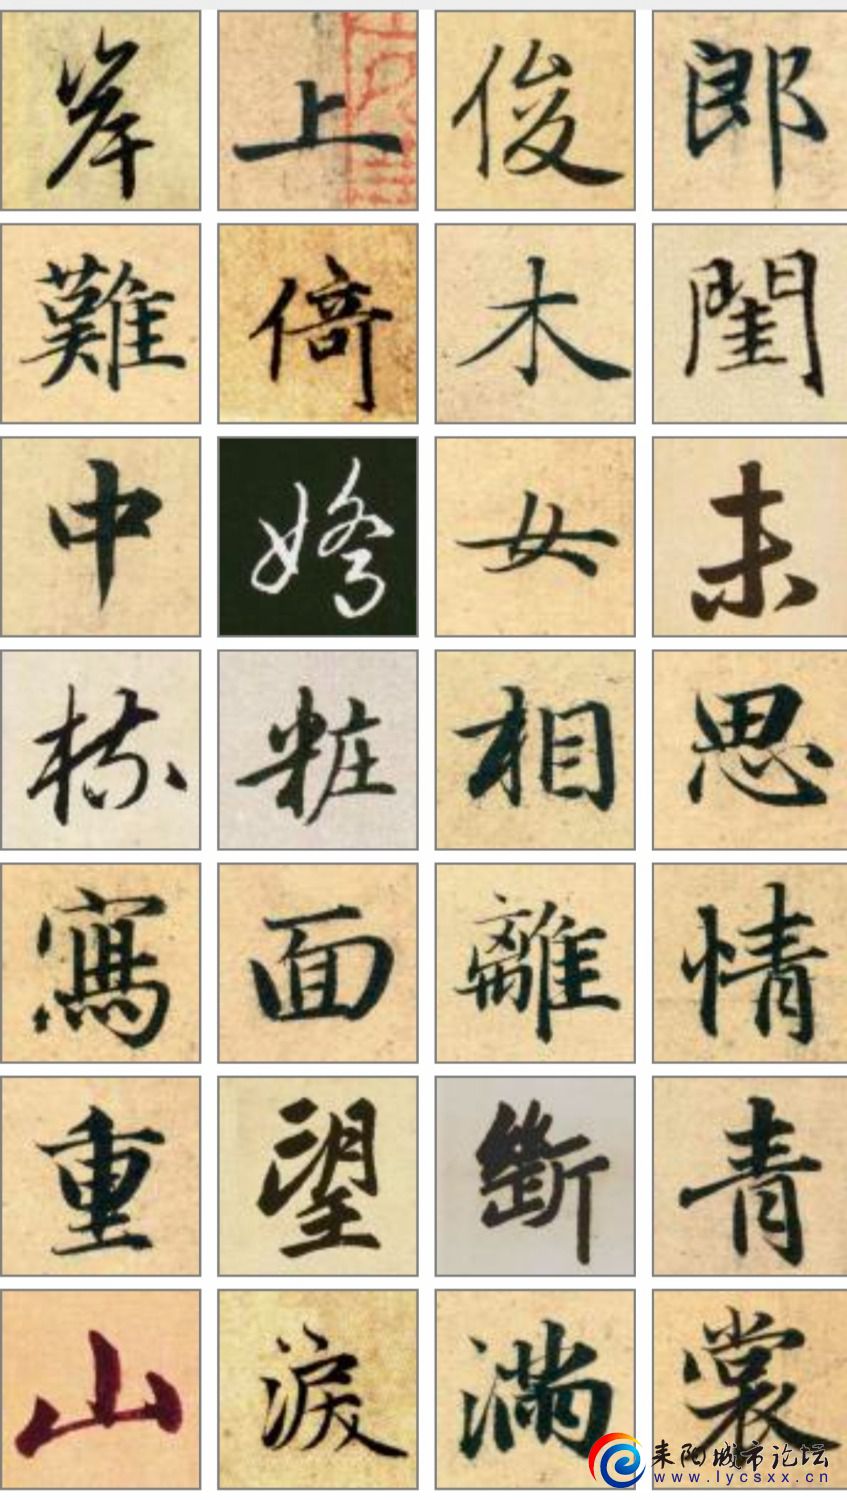 岸上俊郎
難倚木閨
中嬌女未
梳粧相思
寫面離情
重望斷青
山淚滿裳
耒阳城市论坛
www.lycsxx.cn